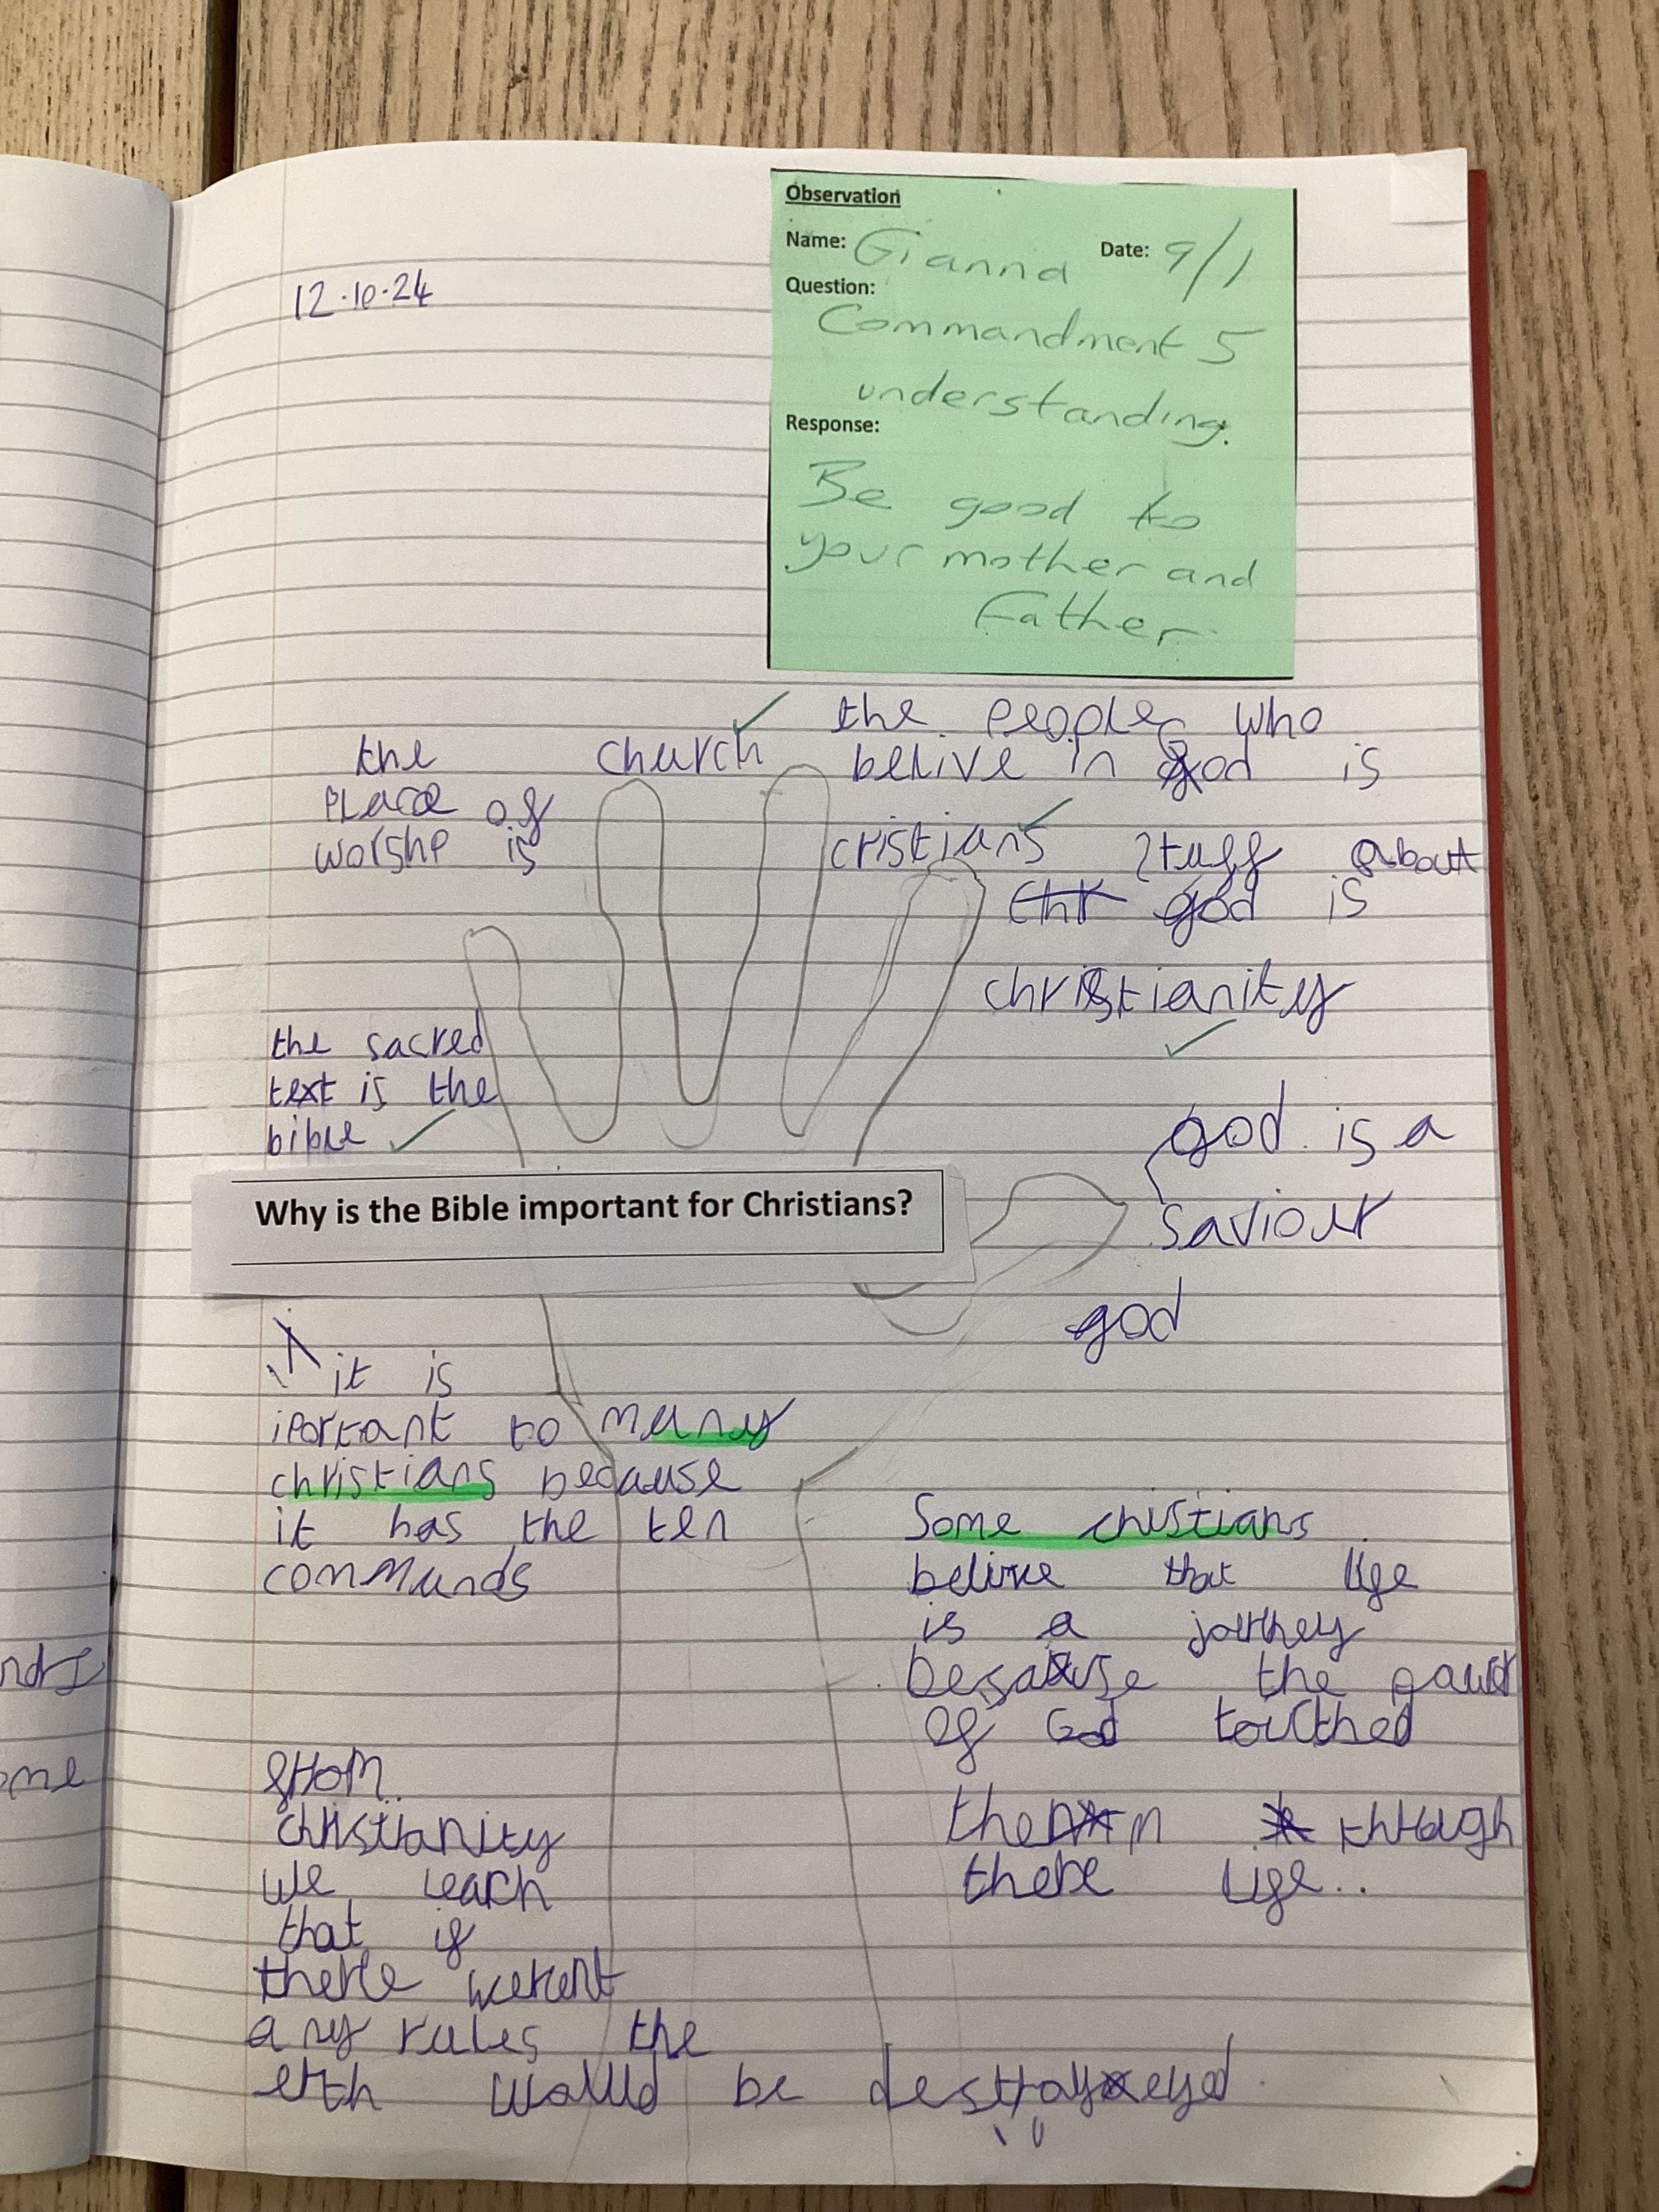 12.10.24
Observation
Name: Gianna Date: 9/1
Question:
Commandment 5
understanding.
Response:
Be good to
your mother and
Father
the
Place of
worshe is
church
the people who
belive in god is
cristians
stuff about
god is
christianity
the sacred
text is the
bible
god is a
saviour
god
Why is the Bible important for Christians?
it is
iportant to many
christians because
it has the ten
commands
Some christians
belive that life
is a journey
because the
of God touched
them through
there life..
from
christianity
we learn
that if
there werent
any rules the
erth would be destroyeyed
ndI
ome